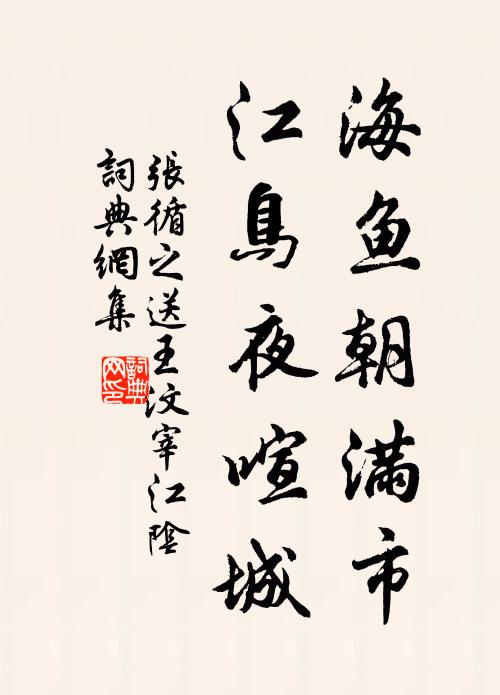 海鱼朝满市
江鳥夜喧城
張循之送王汶宰江陰
詞典網集
詞典网印